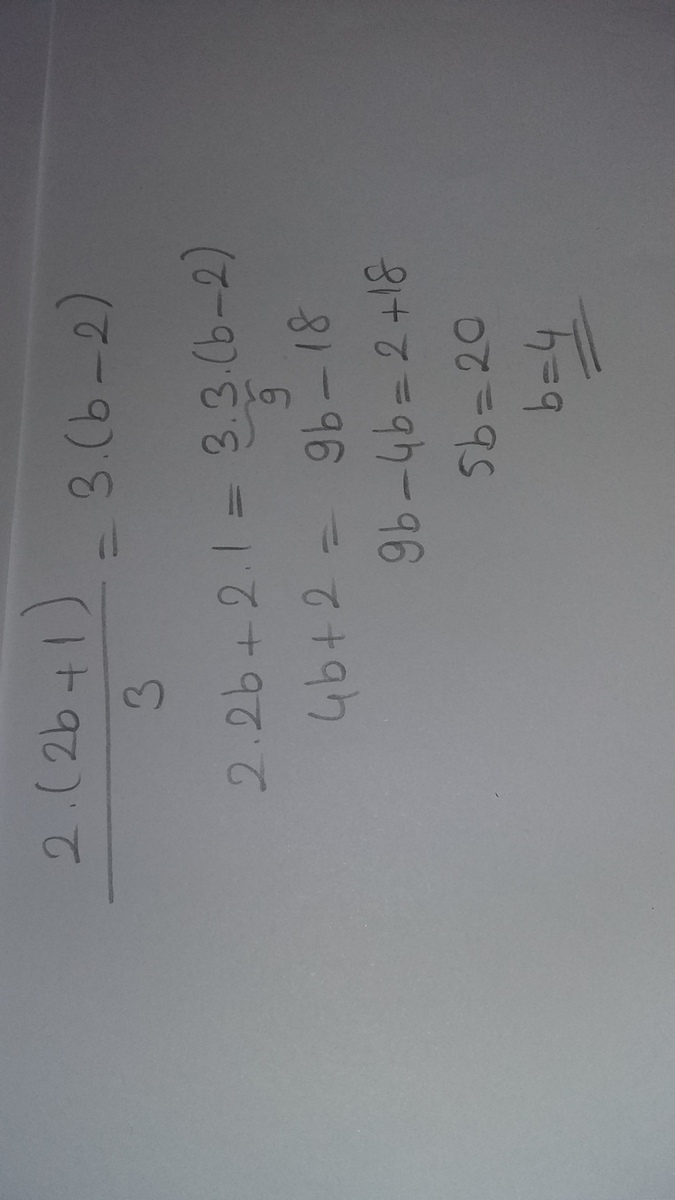 2.(2b+1)/3 = 3.(b-2)
2.2b+2.1 = 3.3.(b-2)
9
4b+2 = 9b-18
9b-4b=2+18
5b=20
b=4